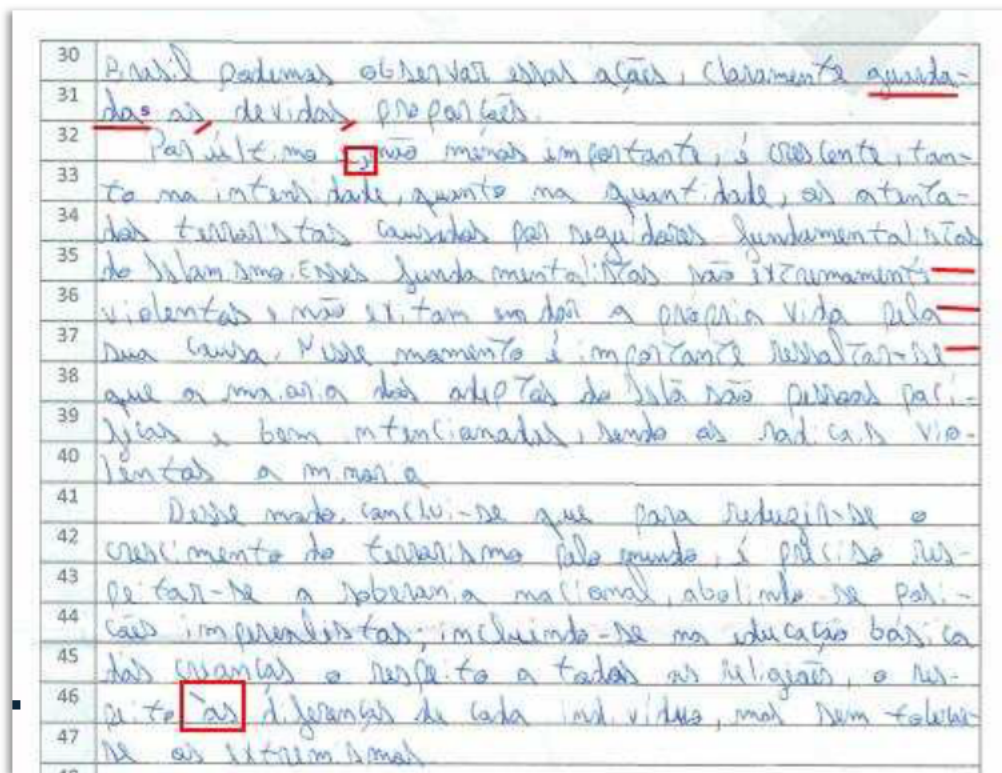 30 Brasil podemos observar essas ações, claramente guarda-
31 das as devidas proporções.
32 Por último e não menos importante, é crescente, tan-
33 to na intensidade, quanto na quantidade, os atenta-
34 dos terroristas causados por seguidores fundamentalistas
35 do Islamismo. Esses fundamentalistas são extremamente
36 violentos e não exitam em dar a própria vida pela
37 sua causa. Nesse momento é importante ressaltar-se
38 que a maioria dos adeptos do Islã são pessoas pací-
39 ficas e bem intencionadas, sendo os radicais vio-
40 lentos a minoria.
41 Desse modo, conclui-se que para reduzir-se o
42 crescimento do terrorismo pelo mundo, é preciso res-
43 peitar-se a soberania nacional, abolindo-se posi-
44 ções imperealistas; incluindo-se na educação básica
45 das crianças o respeito a todas as religiões, o res-
46 peito às diferenças de cada indivíduo, mas sem tolerar-
47 se os extremismos.